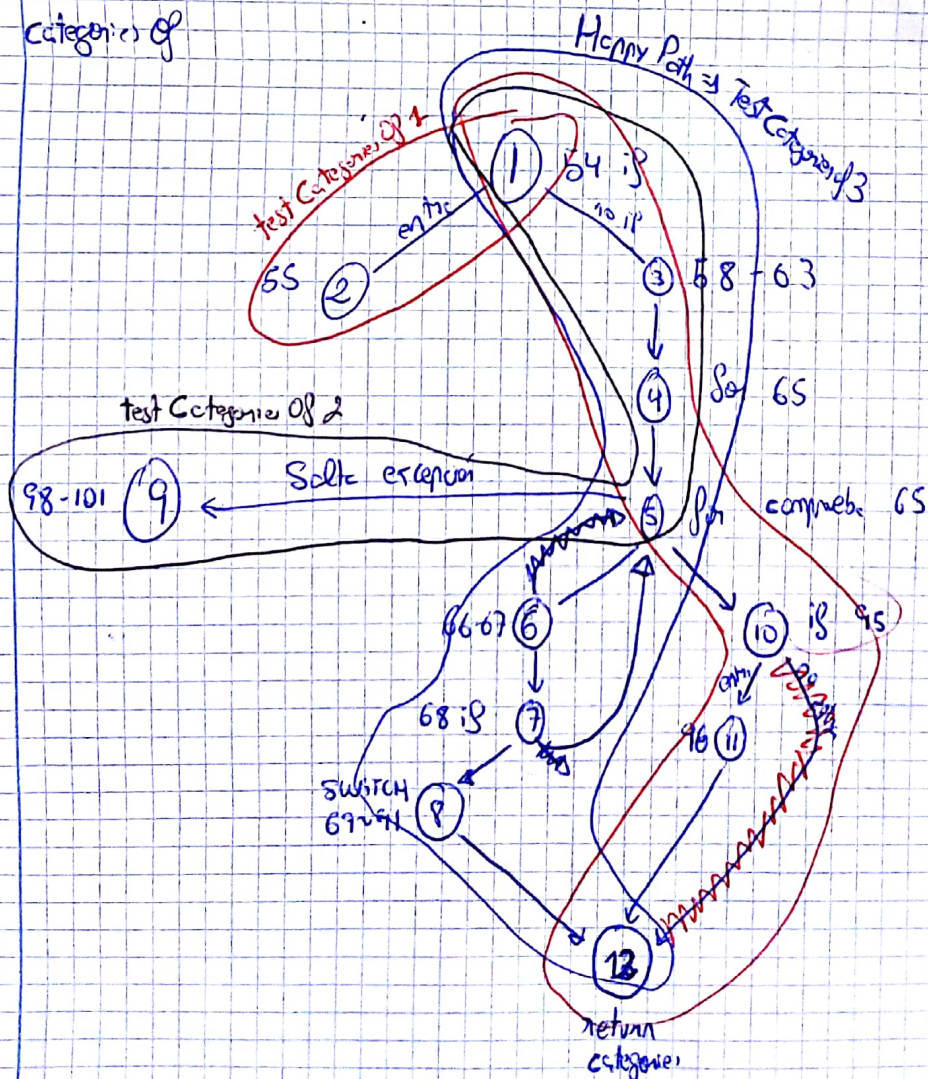 categories Of
Happy Path => Test Categories of 3
test Categories Of 1
1
54 if
entra
no if
55
2
3
58-63
4
for 65
test Categories Of 2
98-101
9
Salta excepción
5
for comprueba 65
66-67
6
10
if 95
entra
68 if
7
96
11
SWITCH
8
69-91
12
return
categories